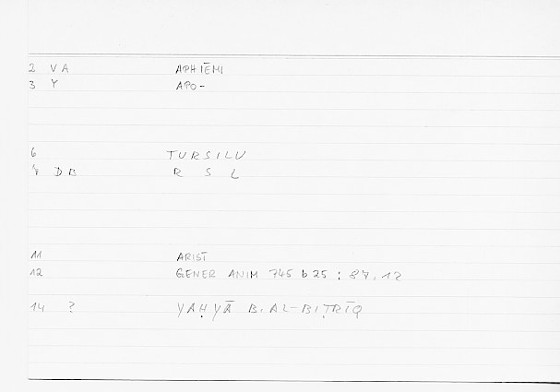 2 VA APHIĒMI
3 Y APO-
6 TURSILU
DB R S L
11 ARIST
12 GENER ANIM 745 b 25 : 87.12
14 ? YAḤYĀ B. AL-BIṬRĪQ